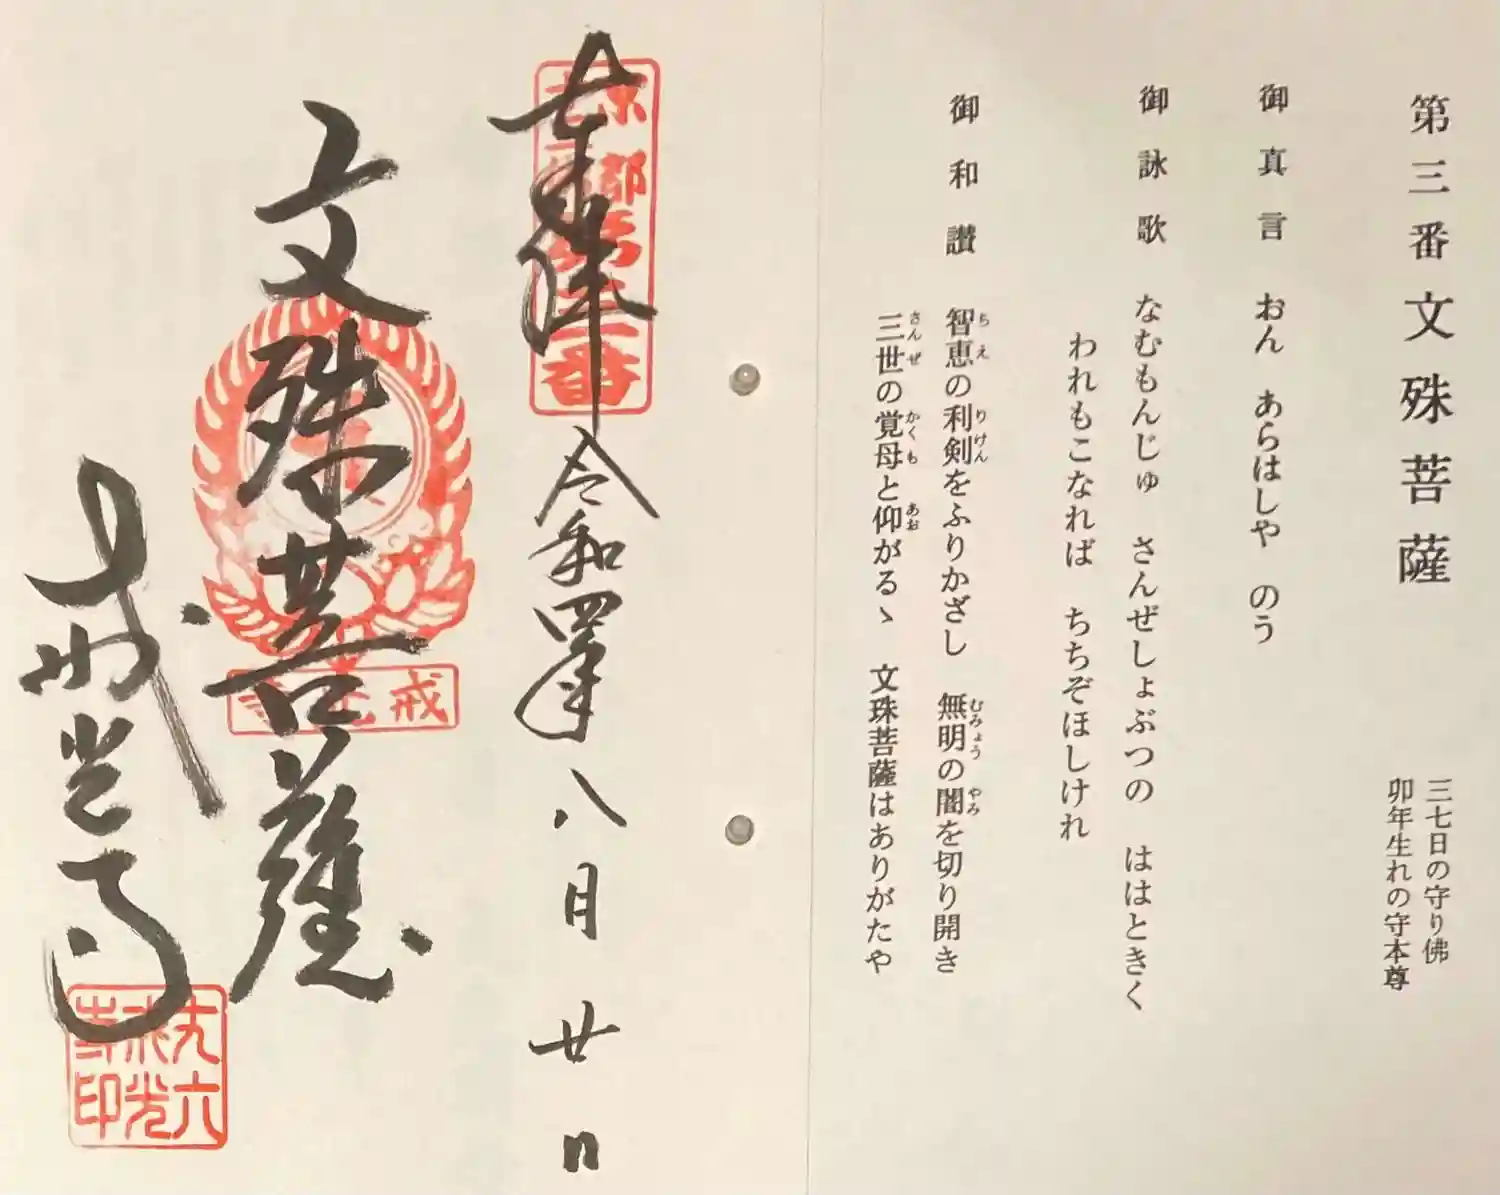 第三番文殊菩薩
三七日の守り佛
卯年生れの守本尊
御真言 おん あらはしや のう
御詠歌 なむもんじゅ さんぜしょぶつの ははときく
われもこなれば ちちぞほしけれ
御和讃 智恵の利剣をふりかざし 無明の闇を切り開き
ちえ りけん むみょう やみ
三世の覚母と仰がるヽ 文珠菩薩はありがたや
さんぜ かくも あお
奉拝
令和四年八月廿日
京都
第三番
文殊菩薩
戒光寺